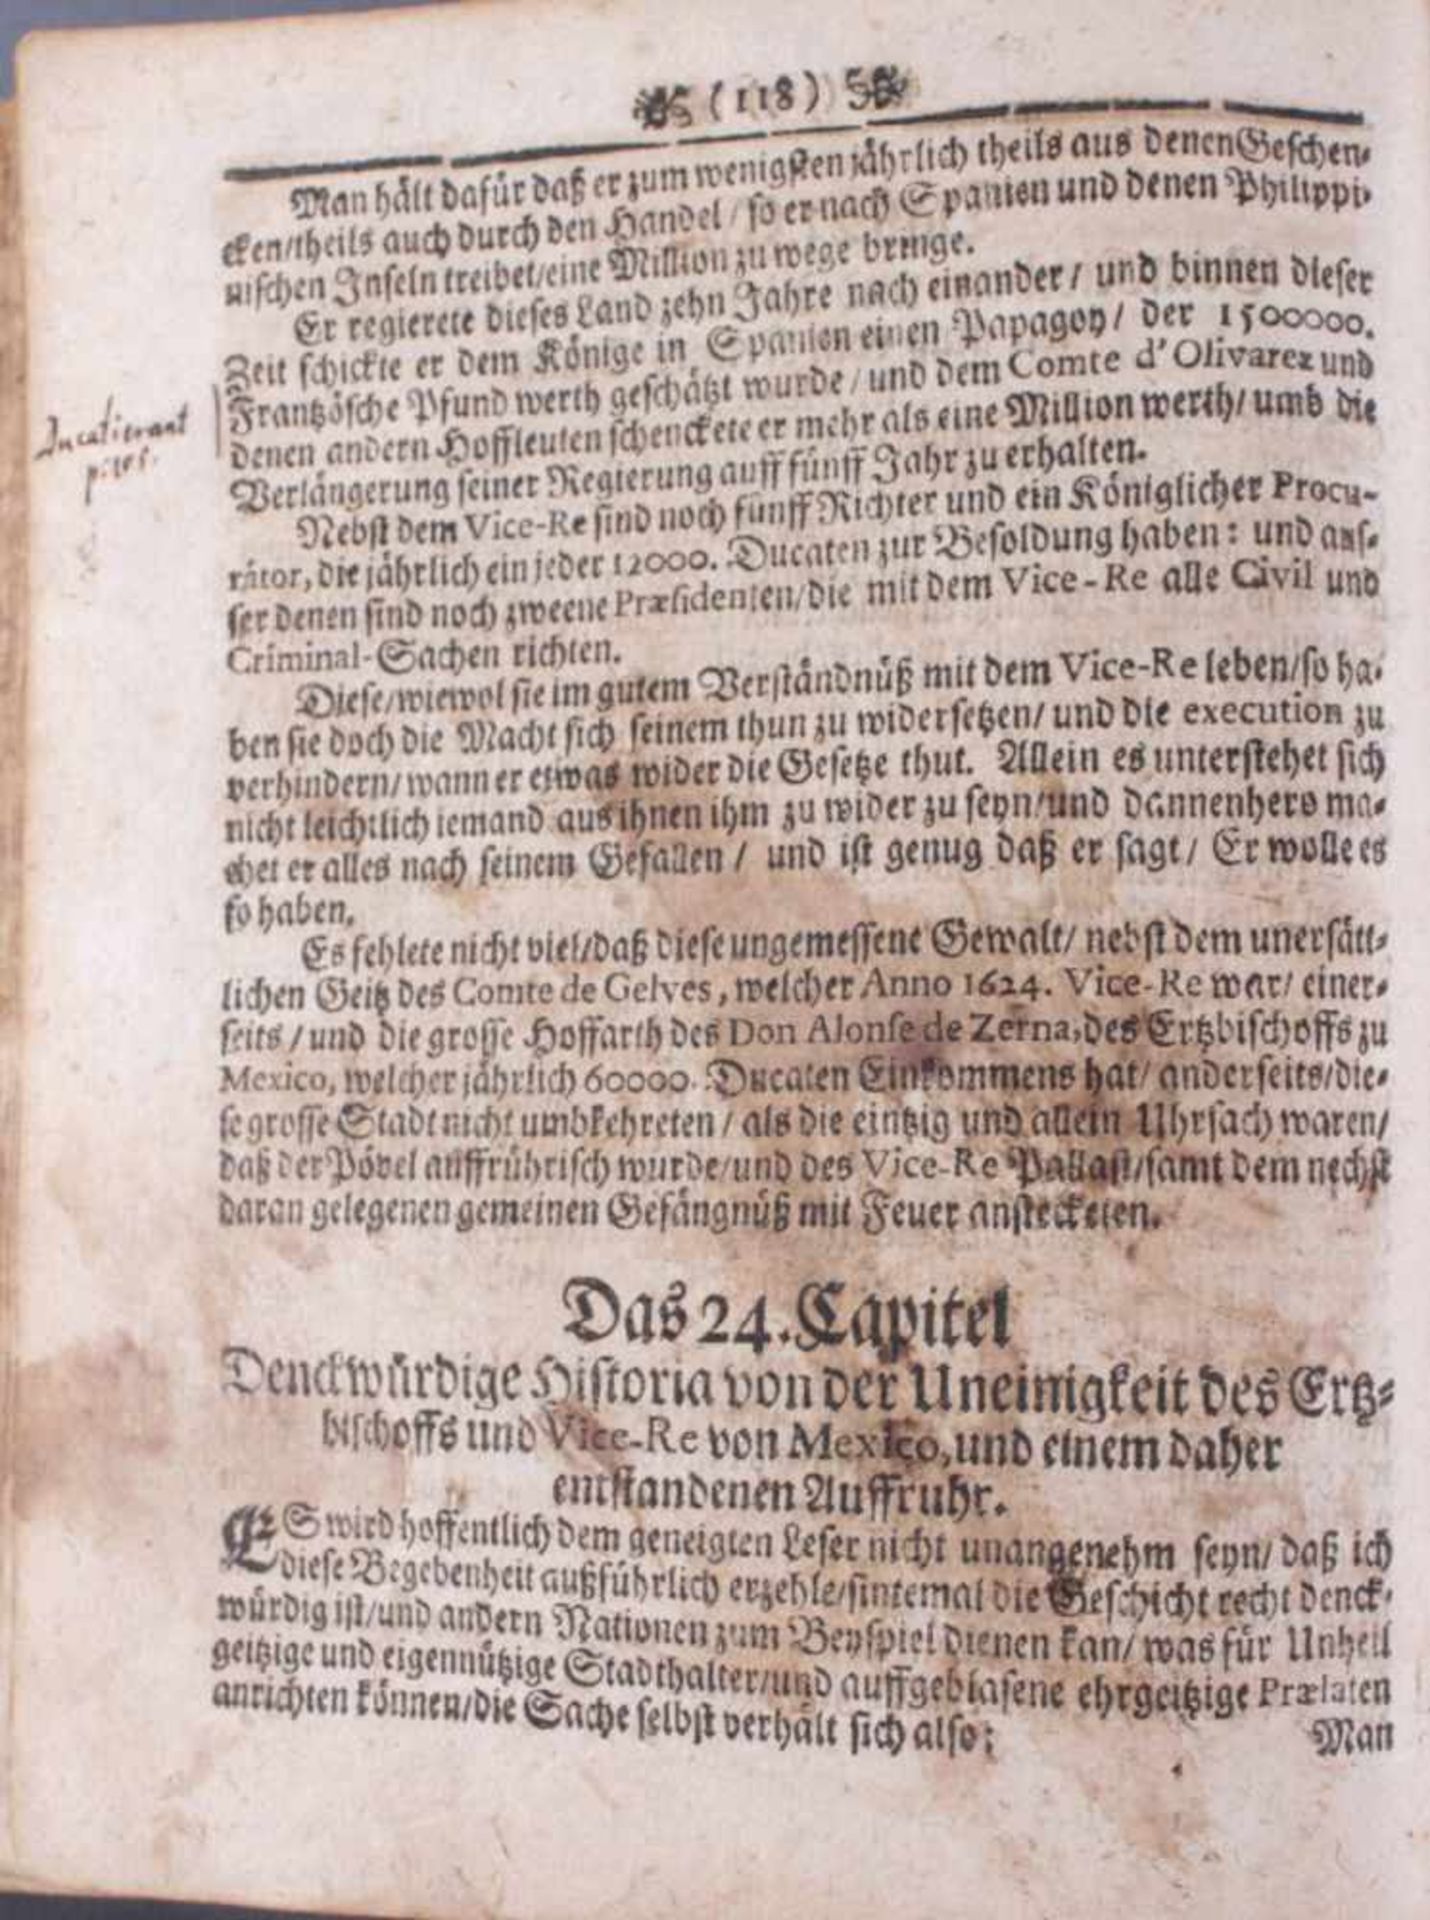 (118)
Man hält dafür daß er zum wenigsten jährlich theils aus denen Geschen-
cken/theils auch durch den Handel / so er nach Spanien und denen Philippi-
nischen Inseln treibet/eine Million zu wege bringe.
Er regierete dieses Land zehn Jahre nach einander / und binnen dieser
Zeit schickte er dem Könige in Spanien einen Papagoy / der 1500000.
Frantzösche Pfund werth geschätzt wurde / und dem Comte d'Olivarez und
denen andern Hoffleuten schenckete er mehr als eine Million werth/ umb die
Verlängerung seiner Regierung auff fünff Jahr zu erhalten.
Nebst dem Vice-Re sind noch fünff Richter und ein Königlicher Procu-
rátor, die jährlich ein jeder 12000. Ducaten zur Besoldung haben: und aus-
ser denen sind noch zweene Præsidenten/die mit dem Vice-Re alle Civil und
Criminal-Sachen richten.
Diese/wiewol sie im gutem Verständnüß mit dem Vice-Re leben/so ha-
ben sie doch die Macht sich seinem thun zu widersetzen/ und die execution zu
verhindern/ wann er etwas wider die Gesetze thut. Allein es unterstehet sich
nicht leichtlich iemand aus ihnen ihm zu wider zu seyn/und dannenhero ma-
chet er alles nach seinem Gefallen / und ist genug daß er sagt/ Er wolle es
so haben.
Es fehlete nicht viel/daß diese ungemessene Gewalt/ nebst dem unersätt-
lichen Geitz des Comte de Gelves, welcher Anno 1624. Vice-Re war/ einer-
seits / und die grosse Hoffarth des Don Alonse de Zerna, des Ertzbischoffs zu
Mexico, welcher jährlich 60000. Ducaten Einkommens hat/ anderseits/die-
se grosse Stadt nicht umbkehreten / als die eintzig und allein Uhrsach waren/
daß der Pövel auffrührisch wurde/und des Vice-Re Pallast/samt dem nechst
daran gelegenen gemeinen Gefängnüß mit Feuer anstecketen.
Das 24. Capitel
Denckwürdige Historia von der Uneinigkeit des Ertz-
bischoffs und Vice-Re von Mexico, und einem daher
entstandenen Auffruhr.
ES wird hoffentlich dem geneigten Leser nicht unangenehm seyn/ daß ich
diese Begebenheit außführlich erzehle/sintemal die Geschicht recht denck-
würdig ist/und andern Nationen zum Beyspiel dienen kan/ was für Unheil
geitzige und eigennützige Stadthalter/und auffgeblasene ehrgeitzige Prælaten
anrichten können/die Sache selbst verhält sich also:
Man